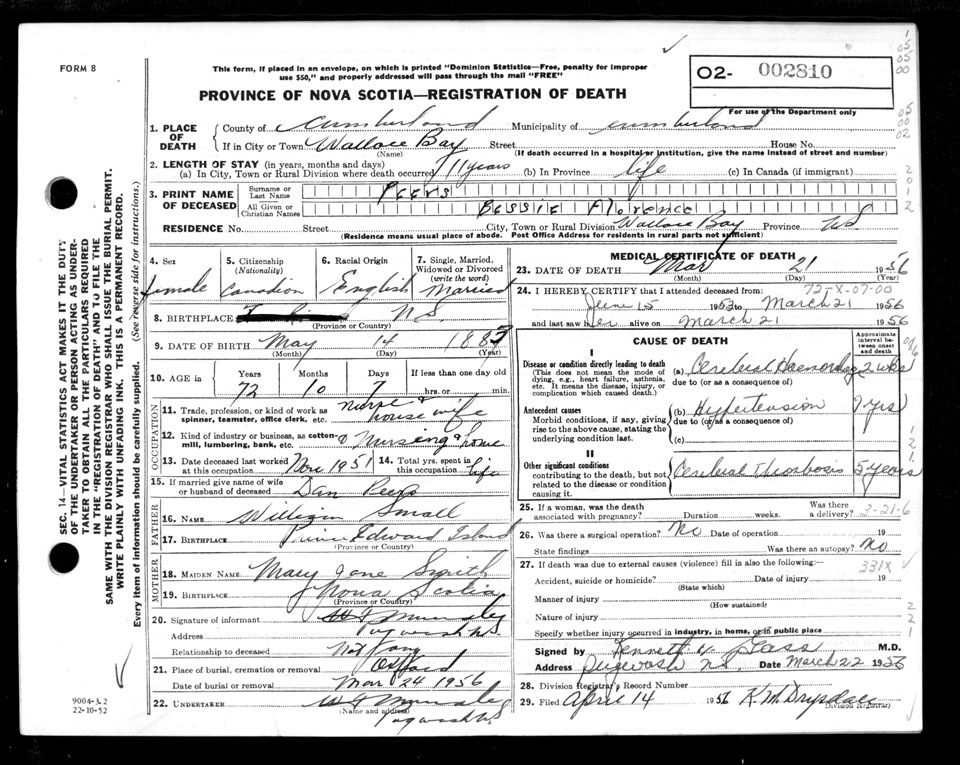 FORM 8
This form, if placed in an envelope, on which is printed "Dominion Statistics—Free, penalty for improper
use $50," and properly addressed will pass through the mail "FREE"
02- 002810
For use of the Department only
PROVINCE OF NOVA SCOTIA—REGISTRATION OF DEATH
1. PLACE OF DEATH
County of Cumberland Municipality of Cumberland
If in City or Town Wallace Bay Street House No.
(Name) (If death occurred in a hospital or institution, give the name instead of street and number)
2. LENGTH OF STAY (in years, months and days)
(a) In City, Town or Rural Division where death occurred 11 years (b) In Province life (c) In Canada (if immigrant)
3. PRINT NAME OF DECEASED
Surname or Last Name PEERS
All Given or Christian Names BESSIE Florence
RESIDENCE No. Street City, Town or Rural Division Wallace Bay Province NS
(Residence means usual place of abode. Post Office Address for residents in rural parts not sufficient)
4. Sex female
5. Citizenship (Nationality) Canadian
6. Racial Origin English
7. Single, Married, Widowed or Divorced (write the word) Married
8. BIRTHPLACE N S.
(Province or Country)
9. DATE OF BIRTH May 14 1883
(Month) (Day) (Year)
10. AGE in Years Months Days If less than one day old
72 10 7 hrs. or min.
OCCUPATION
11. Trade, profession, or kind of work as spinner, teamster, office clerk, etc. nurse & house wife
12. Kind of industry or business, as cotton-mill, lumbering, bank, etc. Nursing & home
13. Date deceased last worked at this occupation Nov 1951
14. Total yrs. spent in this occupation life
15. If married give name of wife or husband of deceased Dan Peers
FATHER
16. NAME William Small
17. BIRTHPLACE Prince Edward Island
(Province or Country)
MOTHER
18. MAIDEN NAME Mary Jane Smith
19. BIRTHPLACE Nova Scotia
(Province or Country)
20. Signature of informant
Address Pugwash NS.
Relationship to deceased Not any
21. Place of burial, cremation or removal Oxford
Date of burial or removal Mar 24 1956
22. UNDERTAKER
(Name and address) Pugwash NS
MEDICAL CERTIFICATE OF DEATH
23. DATE OF DEATH Mar 21 1956
(Month) (Day) (Year)
24. I HEREBY CERTIFY that I attended deceased from: 72-X-07-00
June 15 1953 to March 21 1956
and last saw her alive on March 21 1956
CAUSE OF DEATH
Approximate interval between onset and death
I
Disease or condition directly leading to death
(This does not mean the mode of dying, e.g., heart failure, asthenia, etc. It means the disease, injury, or complication which caused death.)
(a) Cerebral Haemorrhage 2 wks
due to (or as a consequence of)
Antecedent causes
Morbid conditions, if any, giving rise to the above cause, stating the underlying condition last.
(b) Hypertension yrs
due to (or as a consequence of)
(c)
II
Other significant conditions
contributing to the death, but not related to the disease or condition causing it.
Cerebral Thrombosis 5 years
25. If a woman, was the death associated with pregnancy? Duration weeks. Was there a delivery? 2-21-6
26. Was there a surgical operation? No Date of operation 19
State findings Was there an autopsy? No
27. If death was due to external causes (violence) fill in also the following:— 331X
Accident, suicide or homicide? Date of injury 19
(State which)
Manner of injury
(How sustained)
Nature of injury
Specify whether injury occurred in industry, in home, or in public place
Signed by Kenneth Glass M.D.
Address Pugwash NS. Date March 22 1956
28. Division Registrar's Record Number
29. Filed April 14 1956 K. M. Drysdale
(Division Registrar)
SEC. 14—VITAL STATISTICS ACT MAKES IT THE DUTY
OF THE UNDERTAKER OR PERSON ACTING AS UNDER-
TAKER TO OBTAIN ALL THE PARTICULARS REQUIRED
IN THE "REGISTRATION OF DEATH" AND TO FILE THE
SAME WITH THE DIVISION REGISTRAR WHO SHALL ISSUE THE BURIAL PERMIT.
WRITE PLAINLY WITH UNFADING INK. THIS IS A PERMANENT RECORD.
Every item of information should be carefully supplied. (See reverse side for instructions.)
9004-3.2
22-10-52